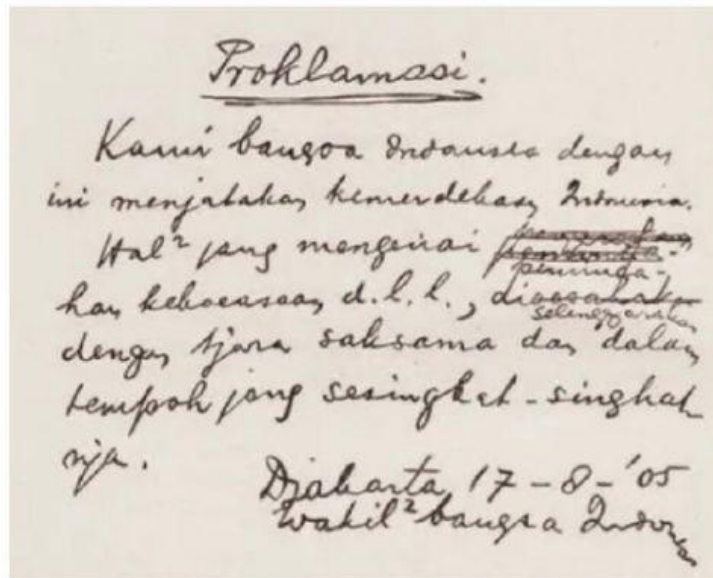 Proklamasi.
Kami bangsa Indonesia dengan
ini menjatakan kemerdekaan Indonesia.
Hal² jang mengenai
peminda-
han kekoeasaan d.l.l., di
selenggarakan
dengan tjara saksama dan dalam
tempoh jang sesingkat-singkat
nja.
Djakarta 17-8-'05
Wakil² bangsa Indonesia